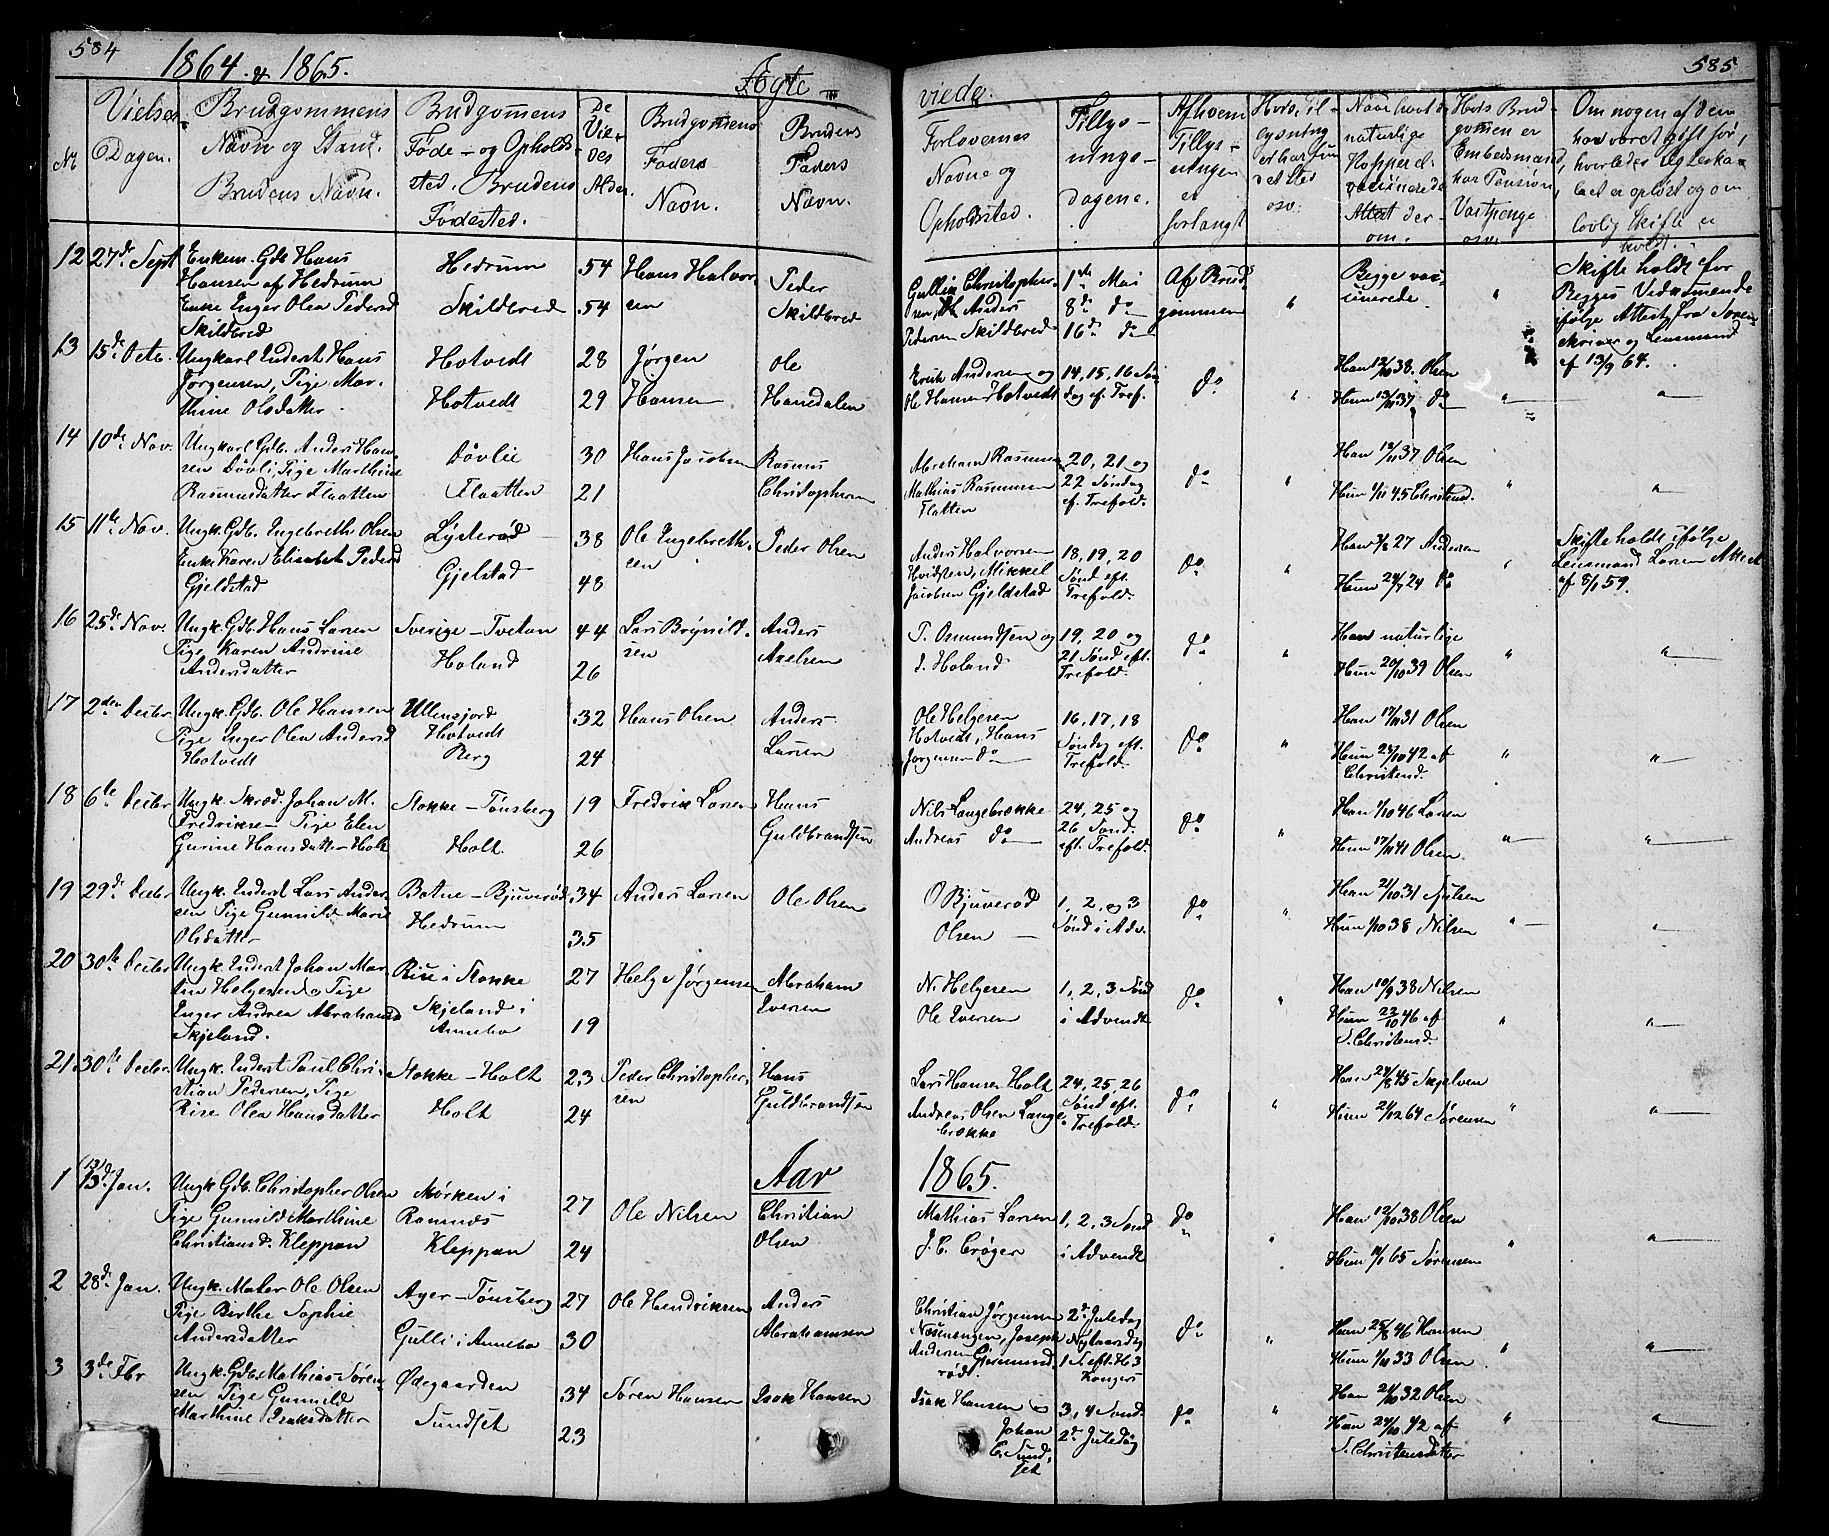 584
1864 & 1865.
Ægte
viede.
585
No
Vielses
Dagen.
Brudgommens
Navn og Stand.
Brudens Navn.
Brudgomens
Føde- og Opholds
sted. Brudens
Fødested.
De
Vie-
des
Alder
Brudgomens
Faders
Navn.
Brudens
Faders
Navn.
Forlovernes
Navne og
Opholdsted.
Tillys-
nings-
dagene.
Af hvem
Tillys-
ningen
er
forlangt
Hvis Til
lysning
ei har fun
det sted
osv.
Naar havt de
naturlige
Kopper el.
vaccinerede
Attest der-
om.
Hvis Brud
gomen er
Embedsmand,
har Pension,
Vartpenge
osv.
Om nogen af dem
har været gift før,
hvorledes Ægteska-
bet er opløst og om
lovlig Skifte er
holdt.
12 27de Sept
Enkem. Gdb Hans
Hansen af Hedrum
Enke Inger Olea Pedersd
Skildbred
Hedrum
Skildbred
54
54
Hans Halvor-
sen
Peder
Skildbred
Gullik Christopher-
sen, Anders
Pedersen Skildbred
1ste Mai
8de do
16de do
Af Brud
gommen
"
Begge vac-
cinerede
"
Skifte holdt for
Begges Vedkomende
ifølge Attest fra Soren-
skriver og Lensmand
af 13/9 64.
13 15de Octo.
Ungkarl Inderst Hans
Jørgensen, Pige Mar-
thine Olsdatter
Hotvedt
Hotvedt
28
29
Jørgen
Hansen
Ole
Hanedalen
Erik Andersen og
Ole Hansen Hotvedt
14, 15, 16 Søn
dag ef. Tref.
do
"
Han 12/10 38. Olsen
Hun 13/11 37 do
"
"
14 10de Nov.
Ungkarl Gdb. Anders Han-
sen Døvli, Pige Marthine
Rasmusdatter Flaatten
Døvlie
Flaatten
30
21
Hans Jacobsen
Rasmus
Christophersen
Abraham Rasmussen
Mathias Rasmussen
Flatten
20, 21 og
22 Søndag
ef. Trefold.
do
"
Han 18/11 37 Olsen
Hun 1/11 45 Christensd.
"
"
15 11te Nov.
Ungk. Gdb. Ingebreth Olsen
Enke Karen Elisabeth Pedersd
Gjeldstad
Lysterød
Gjelstad
38
48
Ole Ingebreth-
sen
Peder Olsen
Anders Halvorsen
Hvidsten, Mikkel
Jacobsen Gjeldstad
18, 19, 20
Sønd eft.
Trefold.
do
"
Han 3/8 27 Andersen
Hun 24/7 24 do
"
Skifte holdt ifølge
Lensmand Larsen Attest
af 8/1 59.
16 25de Nov.
Ungk. Gdb. Hans Larsen
Pige Karen Andrine
Andersdatter
Sverige - Tvetan
Holand
44
26
Lars Brynild-
sen
Anders
Axelsen
T. Omundsen og
I. Holand
19, 20 og
21 Sønd eft.
Trefold.
do
"
Han naturlige
Hun 20/10 39 Olsen
"
"
17 2den Decbr.
Ungk. Gdb. Ole Hansen
Pige Inger Olea Andersd
Hotvedt
Ullensjord
Hotvedt
Berg
32
24
Hans Olsen
Anders
Larsen
Ole Helgesen
Hotvedt, Hans
Jørgensen do
16, 17, 18
Søndag eft.
Trefold.
do
"
Han 17/11 31 Olsen
Hun 23/10 42 af
Christensd.
"
"
18 6te Decbr
Ungk. Skræd. Johan M.
Fredrikse- Pige Elen
Gurine Hansdatter Holt
Stokke - Tønsberg
Holt
19
26
Fredrik Larsen
Hans
Guldbrandsen
Nils Langebrekke
Andreas do
24, 25 og
26 Sønd.
eft. Trefold.
do
"
Han 1/10 46 Larsen
Hun 17/11 41 Olsen.
"
"
19 29de Decbr
Ungk. Inderst Lars Ander-
sen Pige Gunnild Marie
Olsdatter
Botne - Bjuerød
Hedrum
34
35
Anders Larsen
Ole Olsen
O Bjuverød
Olsen
1, 2, og 3
Sønd i Adv.
do
"
Han 21/10 31 Nilsen
Hun 1/10 38 Nilsen
"
"
20 30te Decbr
Ungk. Inderst Johan Mar-
tin Helgesen Pige
Inger Andrea Abrahamsd
Skjeland.
Rise i Stokke
Skjeland i
Annebo
27
19
Helge Jørgensen
Abraham
Iversen
N. Helgesen
Ole Iversen
1, 2, 3 Sønd
i Advendt
do
"
Han 10/9 38 Nilsen
Hun 23/10 46 af
S. Christensd.
"
"
21. 30te Decbr.
Ungk. Inderst Paul Chri-
stian Pedersen, Pige
Rise Olea Hansdatter
Stokke - Holt
Holt
23
24
Peder Christopher-
sen
Hans
Guldbrandsen
Lars Hansen Holt
Andreas Olsen Lange
brekke
24, 25, 26
Sønd eft.
Trefold.
do
"
Han 24/8 45 Skjelven
Hun 21/12 64 Sørensen
"
"
Aar
1865.
1 (13) 13de Jan.
Ungk. Gdb. Christopher Olsen
Pige Gunnild Marthine
Christiansd. Kleppan
Mørken i
Ramnæs
Kleppan
27
24
Ole Nilsen
Christian
Olsen
Mathias Larsen
J. C. Crøger
1, 2, 3 Sønd
i Advendt
do
"
Han 12/10 38 Olsen
Hun 11/1 65 Sørensen
"
"
2 28de Jan.
Ungk. Maler Ole Olsen
Pige Berthe Sophie
Andersdatter
Ager - Tønsberg
Gulli i Annebo
27
30
Ole Hendriksen
Anders
Abrahamsen
Christian Jørgensen
Næsenengen, Joseph
Andersen Gjermund-
rødt.
2de Juledag
Nytaarsdag
1 S. eft. H 3
Konger
do
"
Han 25/8 46 Hansen
Hun 1/11 33 Olsen
"
"
3 3de Fbr
Ungk. Gdb. Mathias Søren-
sen Pige Gunnild
Marthine Isaksdatter
Ødegaarden
Sundset
34
23
Søren Hansen
Isak Hansen
Isak Hansen
Johan
C. Sund-
set
3, 4 Sønd.
2de Juledag
do
"
Han 21/10 32 Olsen
Hun 24/10 42 af
S. Christensdatter
"
"